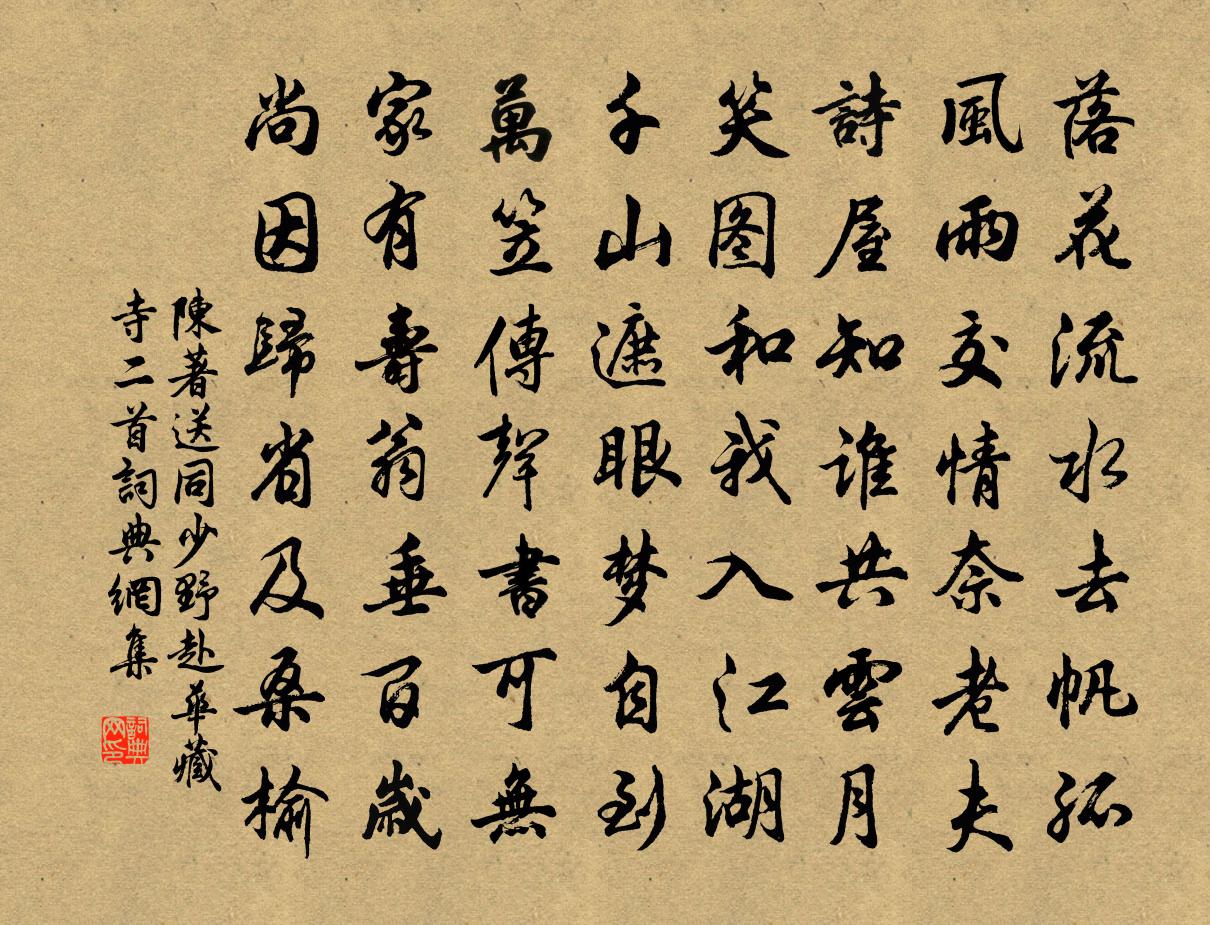 落花流水去帆孤
風雨交情奈老夫
詩屋知谁共雲月
笑图和我入江湖
千山遮眼梦自到
萬笠傳聲書可無
家有壽翁垂百歲
尚因歸省及桑榆
陳著送同少野赴華藏
寺二首詞典網集
詞典
网印